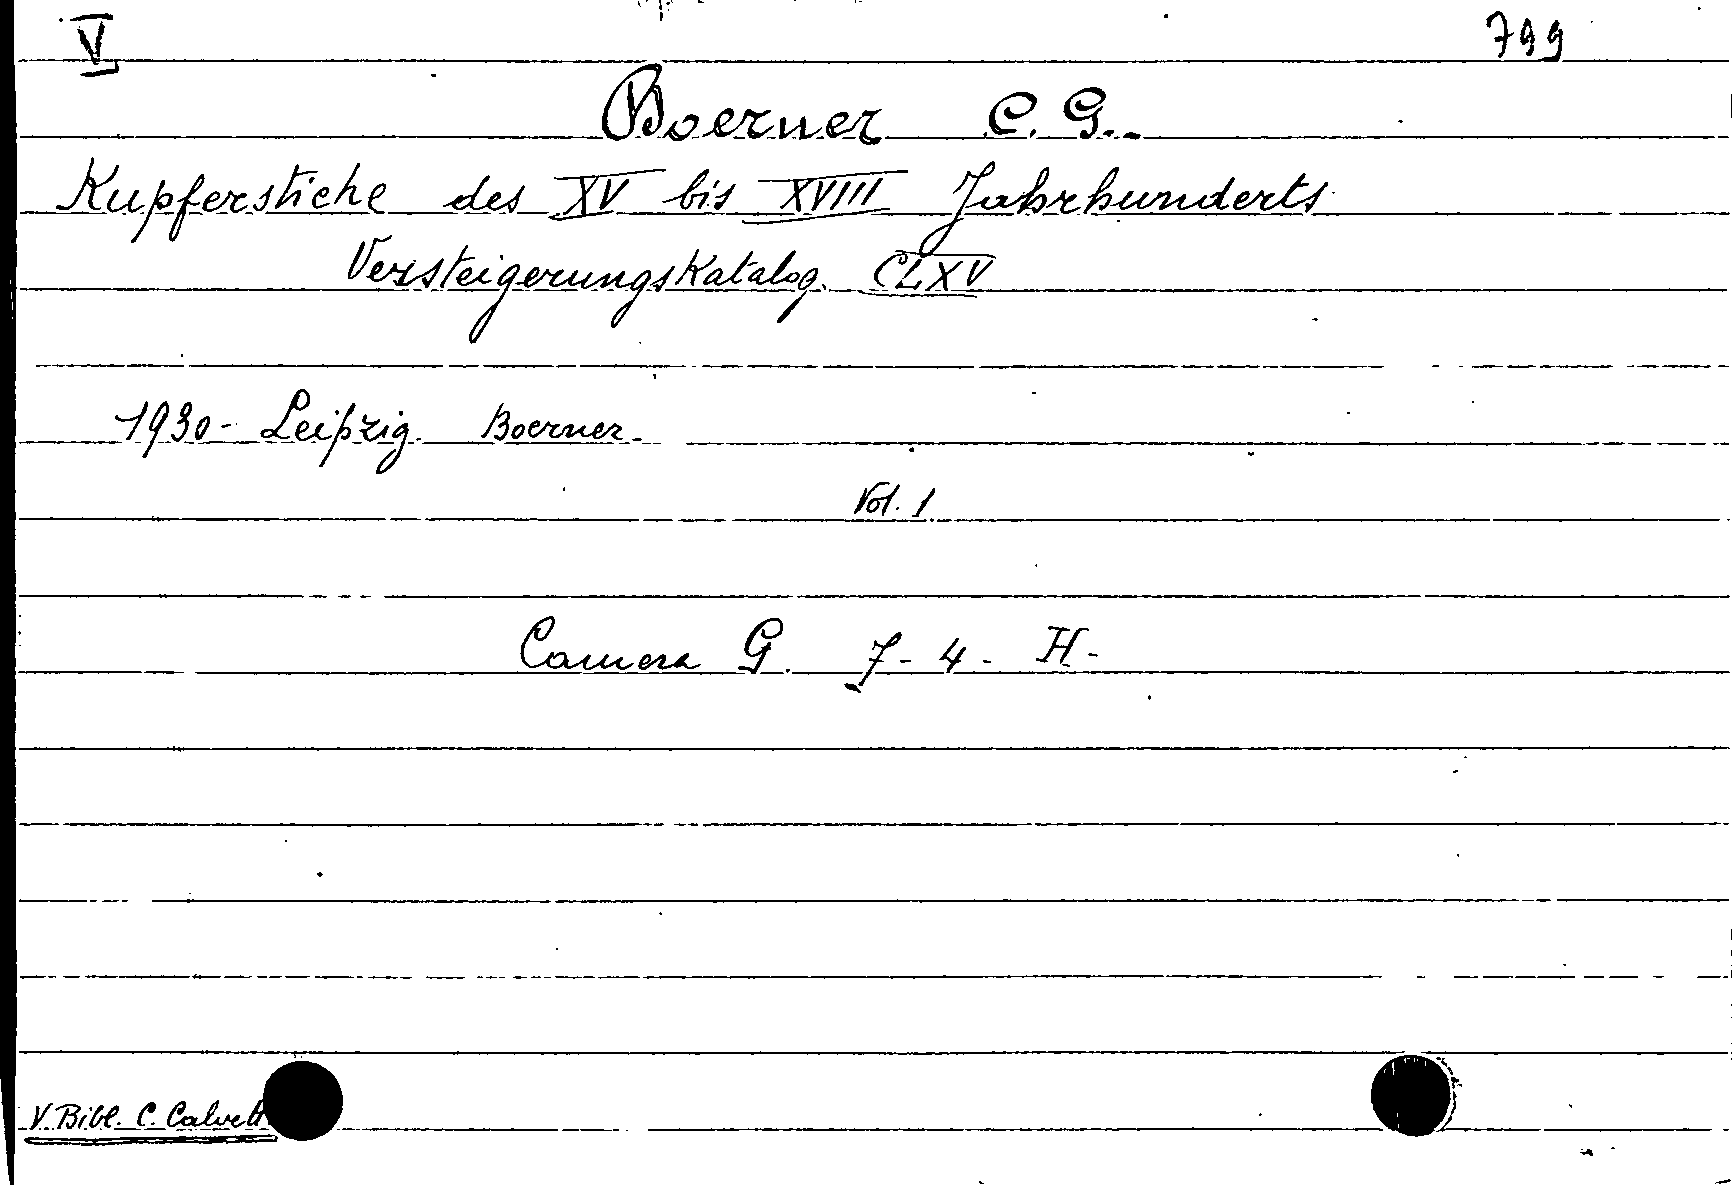 V 799
Boerner C. G.-
Kupferstiche des XV bis XVIII Jahrhunderts
Versteigerungskatalog. CLXV
1930- Leipzig. Boerner.
Vol. 1
Camera G. 7- 4- H-
V. Bibl. C. Calvett